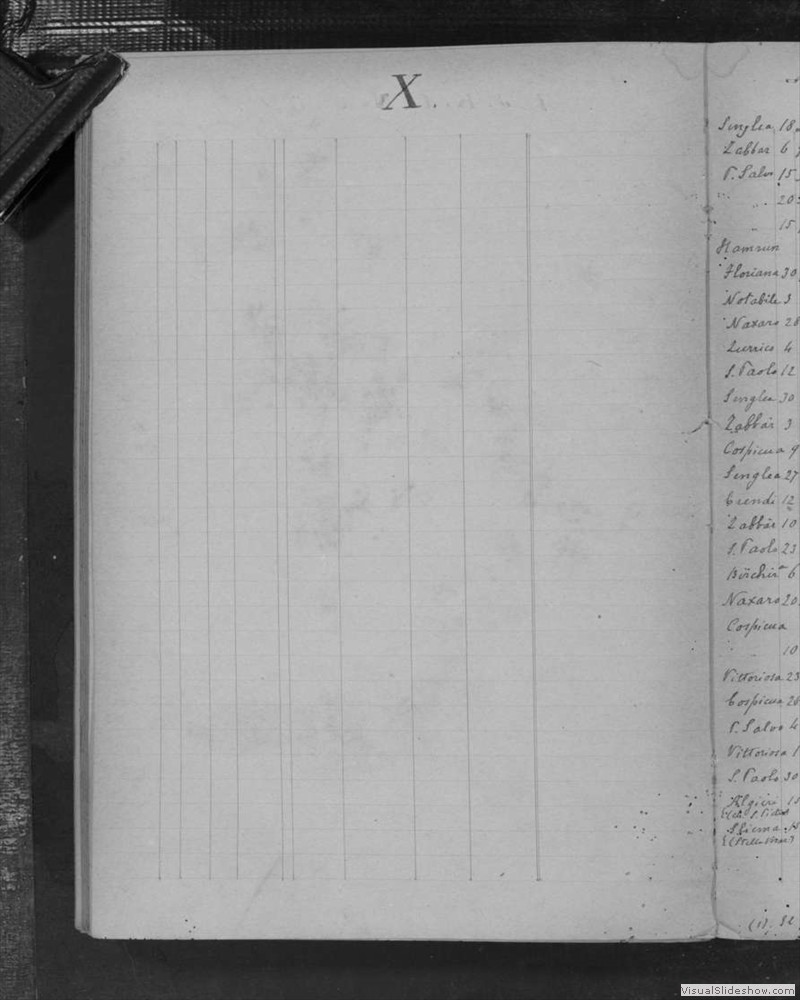 X.
Senglea 18
Zabbar 6
P. Salvo 15
" .. 20
.. 15
Hamrun
Floriana 30
Notabile 3
Naxaro 28
Zurrico 4
S. Paolo 12
Senglea 30
Zabbar 3
Cospicua 9
Senglea 27
Crendi 12
Zabbar 10
S. Paolo 23
Birchirª 6
Naxaro 20
Cospicua
10
Vittoriosa 23
Cospicua 26
P. Salvo 4
Vittoriosa 1
S. Paolo 30
Algieri 15
Sliema
(1).
VisualSlideshow.com